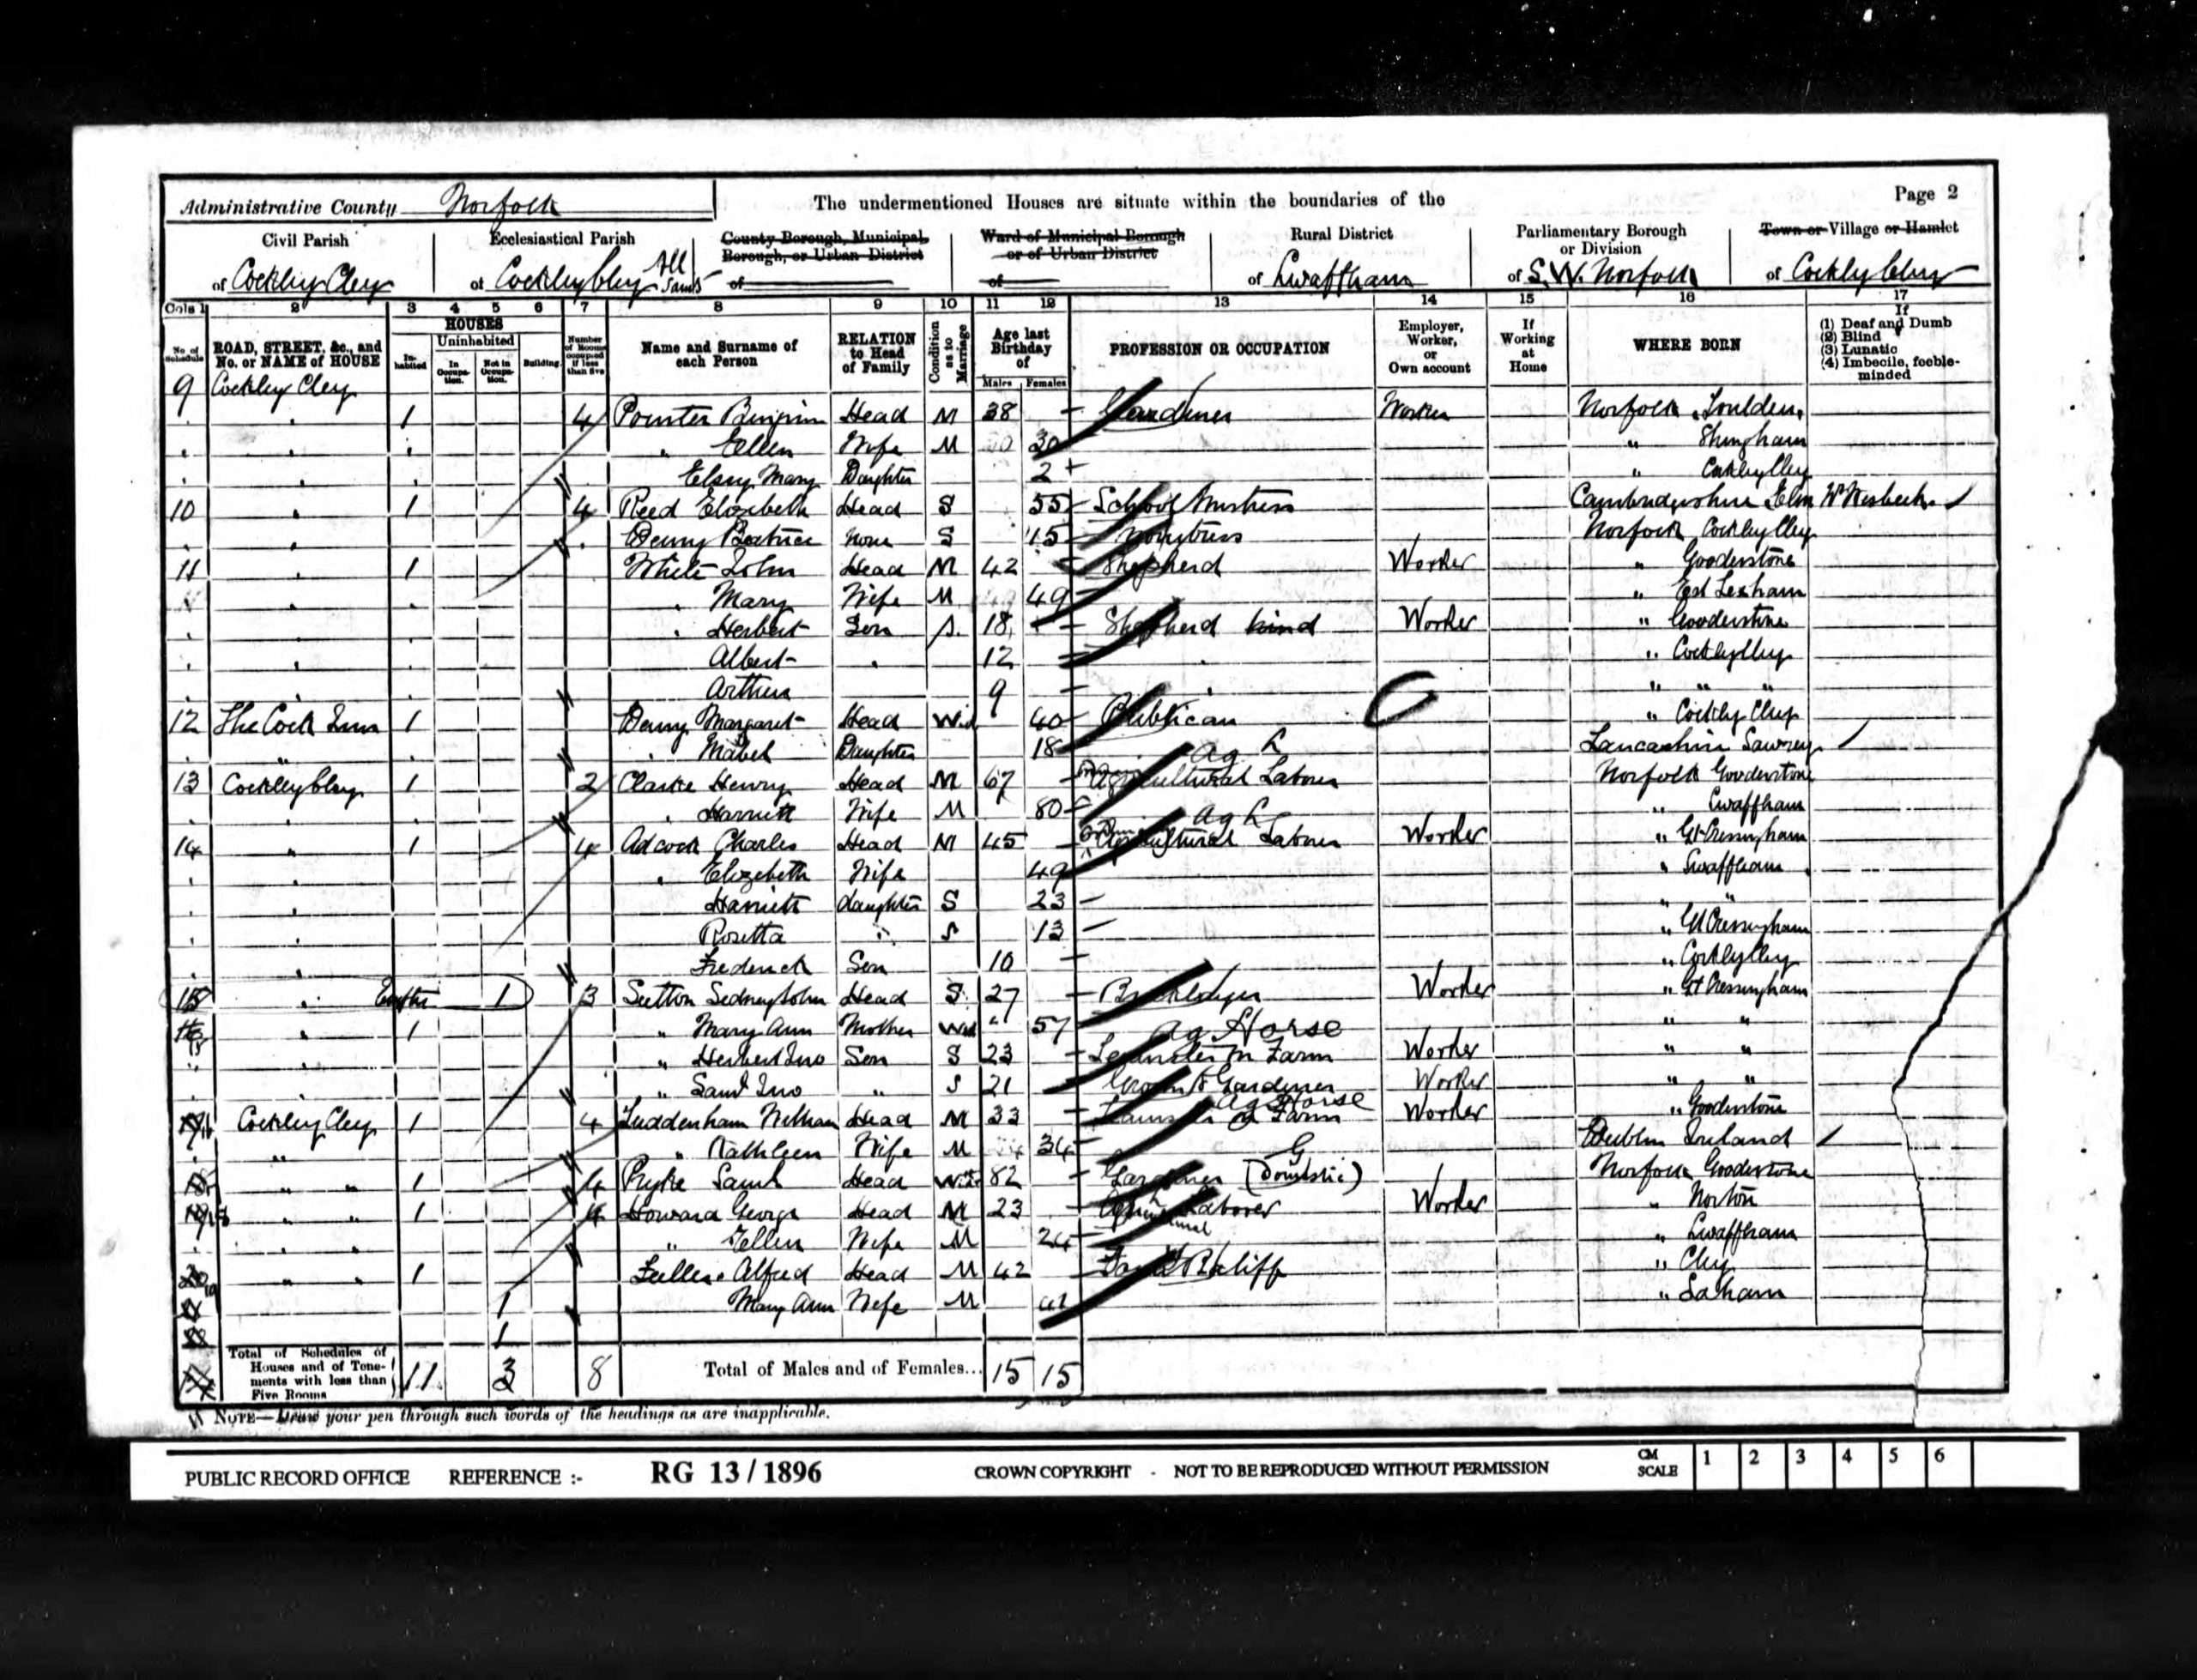 Page 2
Administrative County Norfolk The undermentioned Houses are situate within the boundaries of the
Civil Parish Ecclesiastical Parish County Borough, Municipal Borough, or Urban District Ward of Municipal Borough or of Urban District Rural District Parliamentary Borough or Division Town or Village or Hamlet
of Cockley Cley of Cockley Cley All Saints of of of Swaffham of S.W. Norfolk of Cockly Cley
Cols 1 2 3 4 5 6 7 8 9 10 11 12 13 14 15 16 17
No. of Schedule ROAD, STREET, &c., and No. or NAME of HOUSE HOUSES Inhabited Uninhabited In Occupation. Not in Occupation. Building Number of Rooms occupied if less than five Name and Surname of each Person RELATION to Head of Family Condition as to Marriage Age last Birthday of Males Females PROFESSION OR OCCUPATION Employer, Worker, or Own account If Working at Home WHERE BORN If (1) Deaf and Dumb (2) Blind (3) Lunatic (4) Imbecile, feeble-minded
9 Cockley Cley
1 4 Pointer Head M 38 Gardener Worker Norfolk
" Ellen Wife M 30 " Shingham
Mary Daughter 2 " Cockley Cley
10 1 4 Reed Elizabeth Head S 55 School Mistress Cambridgeshire Elm Nr Wisbech
Denny Beatrice None S 15 Norfolk Cockley Cley
11 1 White John Head M 42 Shepherd Worker " Gooderstone
" Mary Wife M 49 " East Lexham
" Herbert Son S. 18 Shepherd hind Worker " Gooderstone
Albert 12 " Cockley Cley
Arthur 9 " " "
12 The Cock Inn 1 Denny Margaret Head Wid 40 Publican " Cockly Cley
" Mabel Daughter 18 Lancashire Sawrey
13 Cockley Cley 1 2 Clarke Henry Head M 67 Ag L Agricultural Labour Norfolk Gooderstone
" Harriett Wife M 80 " Swaffham
14 " 1 4 Adcock Charles Head M 45 Ag L Agricultural Labour Worker " Gt Cressingham
" Elizabeth Wife 49 " Swaffham
Harriett daughter S 23 " "
Rosetta " S 13 " Gt Cressingham
Frederick Son 10 " Cockley Cley
15 1 3 Sutton Sidney John Head S 27 Bricklayer Worker " Gt Cressingham
1 " Mary Ann Mother Wid 57 " "
" Herbert Jno Son S 23 Ag Horse Farm Worker " "
" Saml Jno " S 21 Groom & Gardener Worker " "
Cockley Cley 1 4 Luddenham William Head M 33 Ag Horse Farm Worker " Gooderstone
" " Kathleen Wife M 34 Dublin Ireland
" " 1 4 Pryke Saml Head Wid 82 G Gardener (Domestic) Norfolk Gooderstone
" " 1 4 Howard George Head M 23 Agricultural Labourer Worker " Norton
" Ellen Wife M 24 " Swaffham
" " 1 Fuller Alfred Head M 42 Farm Bailiff " Cley
1 Mary Ann Wife M 41 " Saham
1
Total of Schedules of Houses and of Tenements with less than Five Rooms 11 3 8 Total of Males and of Females... 15 15
NOTE—Draw your pen through such words of the headings as are inapplicable.
PUBLIC RECORD OFFICE REFERENCE :- RG 13 / 1896 CROWN COPYRIGHT - NOT TO BE REPRODUCED WITHOUT PERMISSION CM SCALE 1 2 3 4 5 6